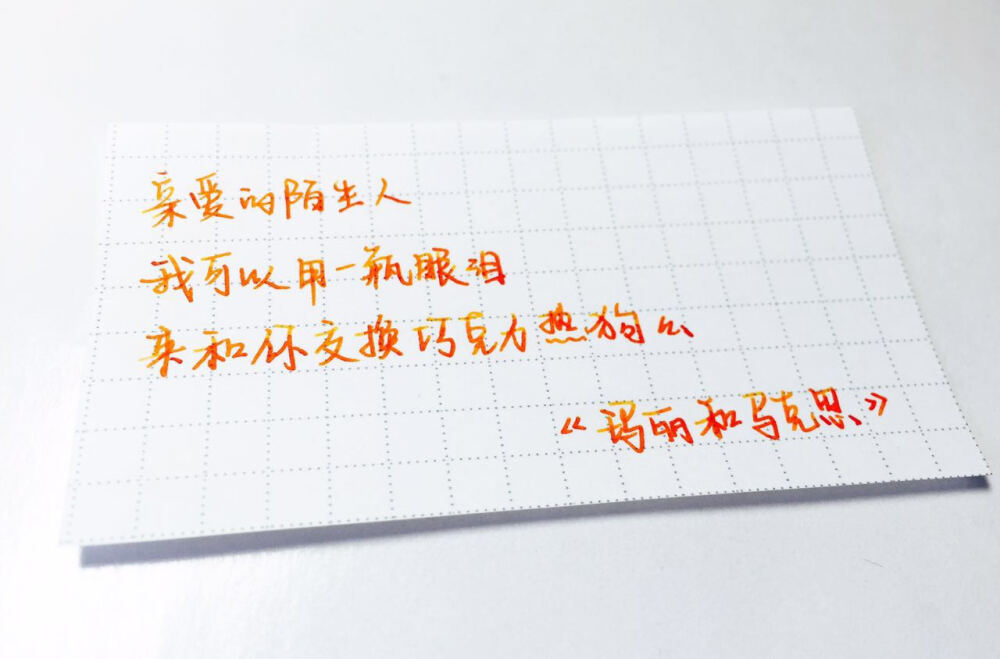 亲爱的陌生人
我可以用一瓶眼泪
来和你交换巧克力热狗么
《玛丽和马克思》